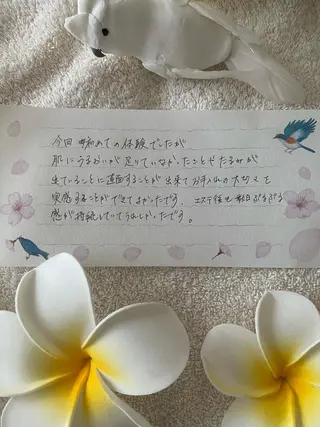 今回初めての体験でしたが
肌にうるおいが足りていなかったことやたるみが
出ていることに直面することが出来てお手入れの大切さを
実感することができてよかったです。エステ後も毎日ぷるぷる
感が持続していてうれしかったです。